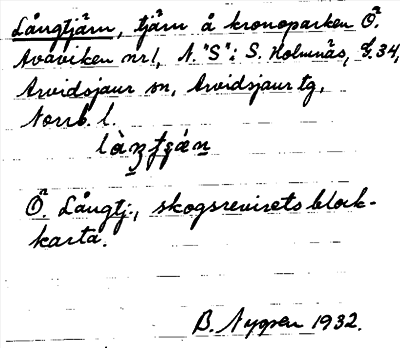 Långtjärn, tjärn å kronoparken Ö.
Avaviken nr 1, N. "S" i S. Holmnäs, G. 34,
Arvidsjaur sn, Arvidsjaur tg,
Norrb. l.
Ö. Långtj., skogsrevirets block-
karta.
B. Nygren 1932.